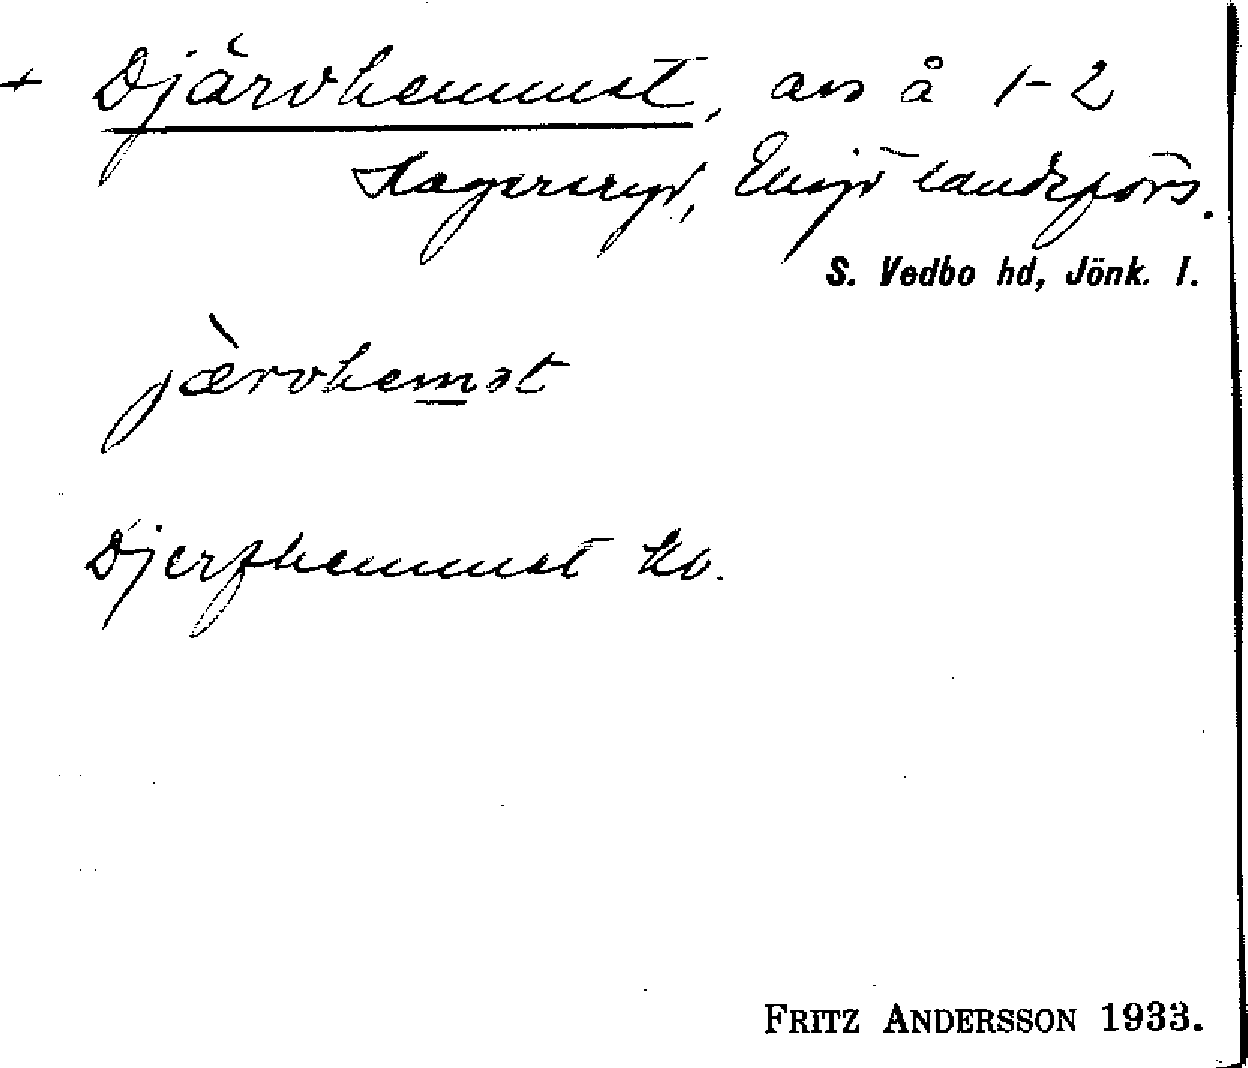 + Djärvhemmet, avs å 1-2
Hagersryd, Eksjö landsförs.
S. Vedbo hd, Jönk. l.
jærvhemət
Djerfhemmet kb.
FRITZ ANDERSSON 1933.